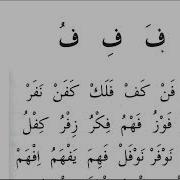 فَ فِ فُ
فَنْ كَفْ فَلَكْ كَفَنْ نَفَرْ
فَوْزُ فَهْمُ فِكْرُ زِفْرُ كِفْلُ
نَوْفَرْ نَوْفَلْ فَهِمَ يَفْهَمُ اِفْهَمْ